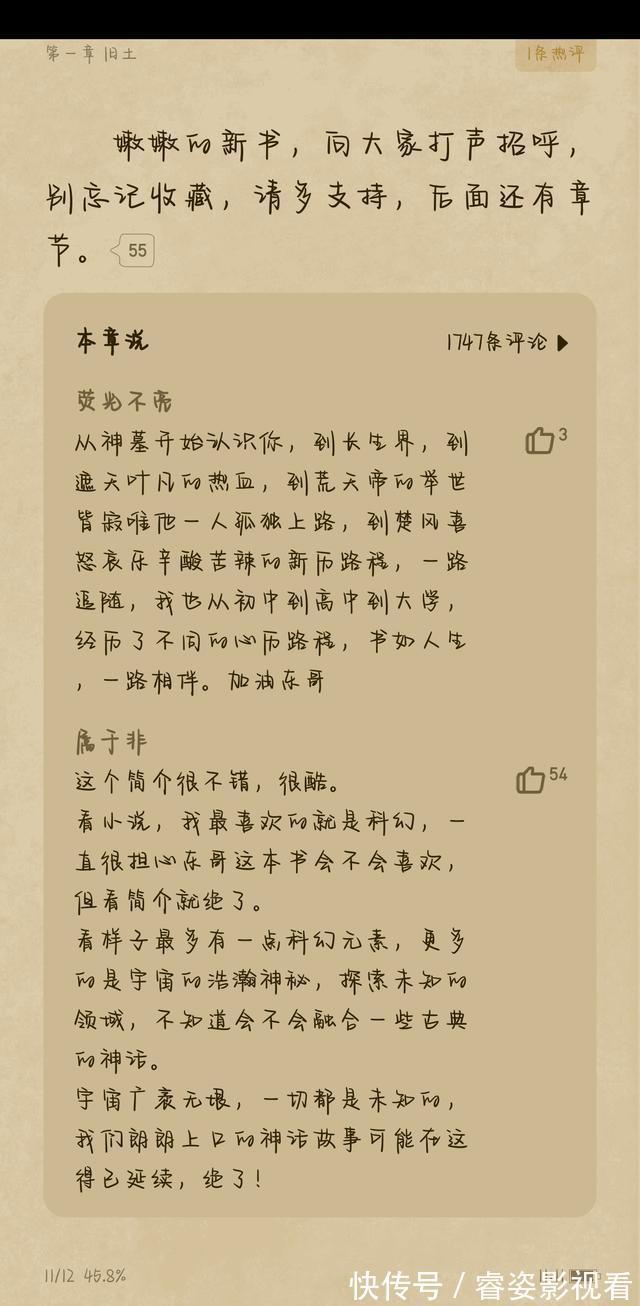 第一章 旧土
1条热评
嫩嫩的新书，向大家打声招呼，
别忘记收藏，请多支持，后面还有章
节。 55
本章说
1747条评论
荧光不亮
从神墓开始认识你，到长生界，到
3
遮天叶凡的热血，到荒天帝的举世
皆寂唯他一人孤独上路，到楚风喜
怒哀乐辛酸苦辣的新历路程，一路
追随，我也从初中到高中到大学，
经历了不同的心历路程，书如人生
，一路相伴。加油东哥
属于非
这个简介很不错，很酷。
54
看小说，我最喜欢的就是科幻，一
直很担心东哥这本书会不会喜欢，
但看简介就绝了。
看样子最多有一点科幻元素，更多
的是宇宙的浩瀚神秘，探索未知的
领域，不知道会不会融合一些古典
的神话。
宇宙广袤无垠，一切都是未知的，
我们朗朗上口的神话故事可能在这
得已延续，绝了！
11/12 45.8%
快传号 / 睿姿影视看